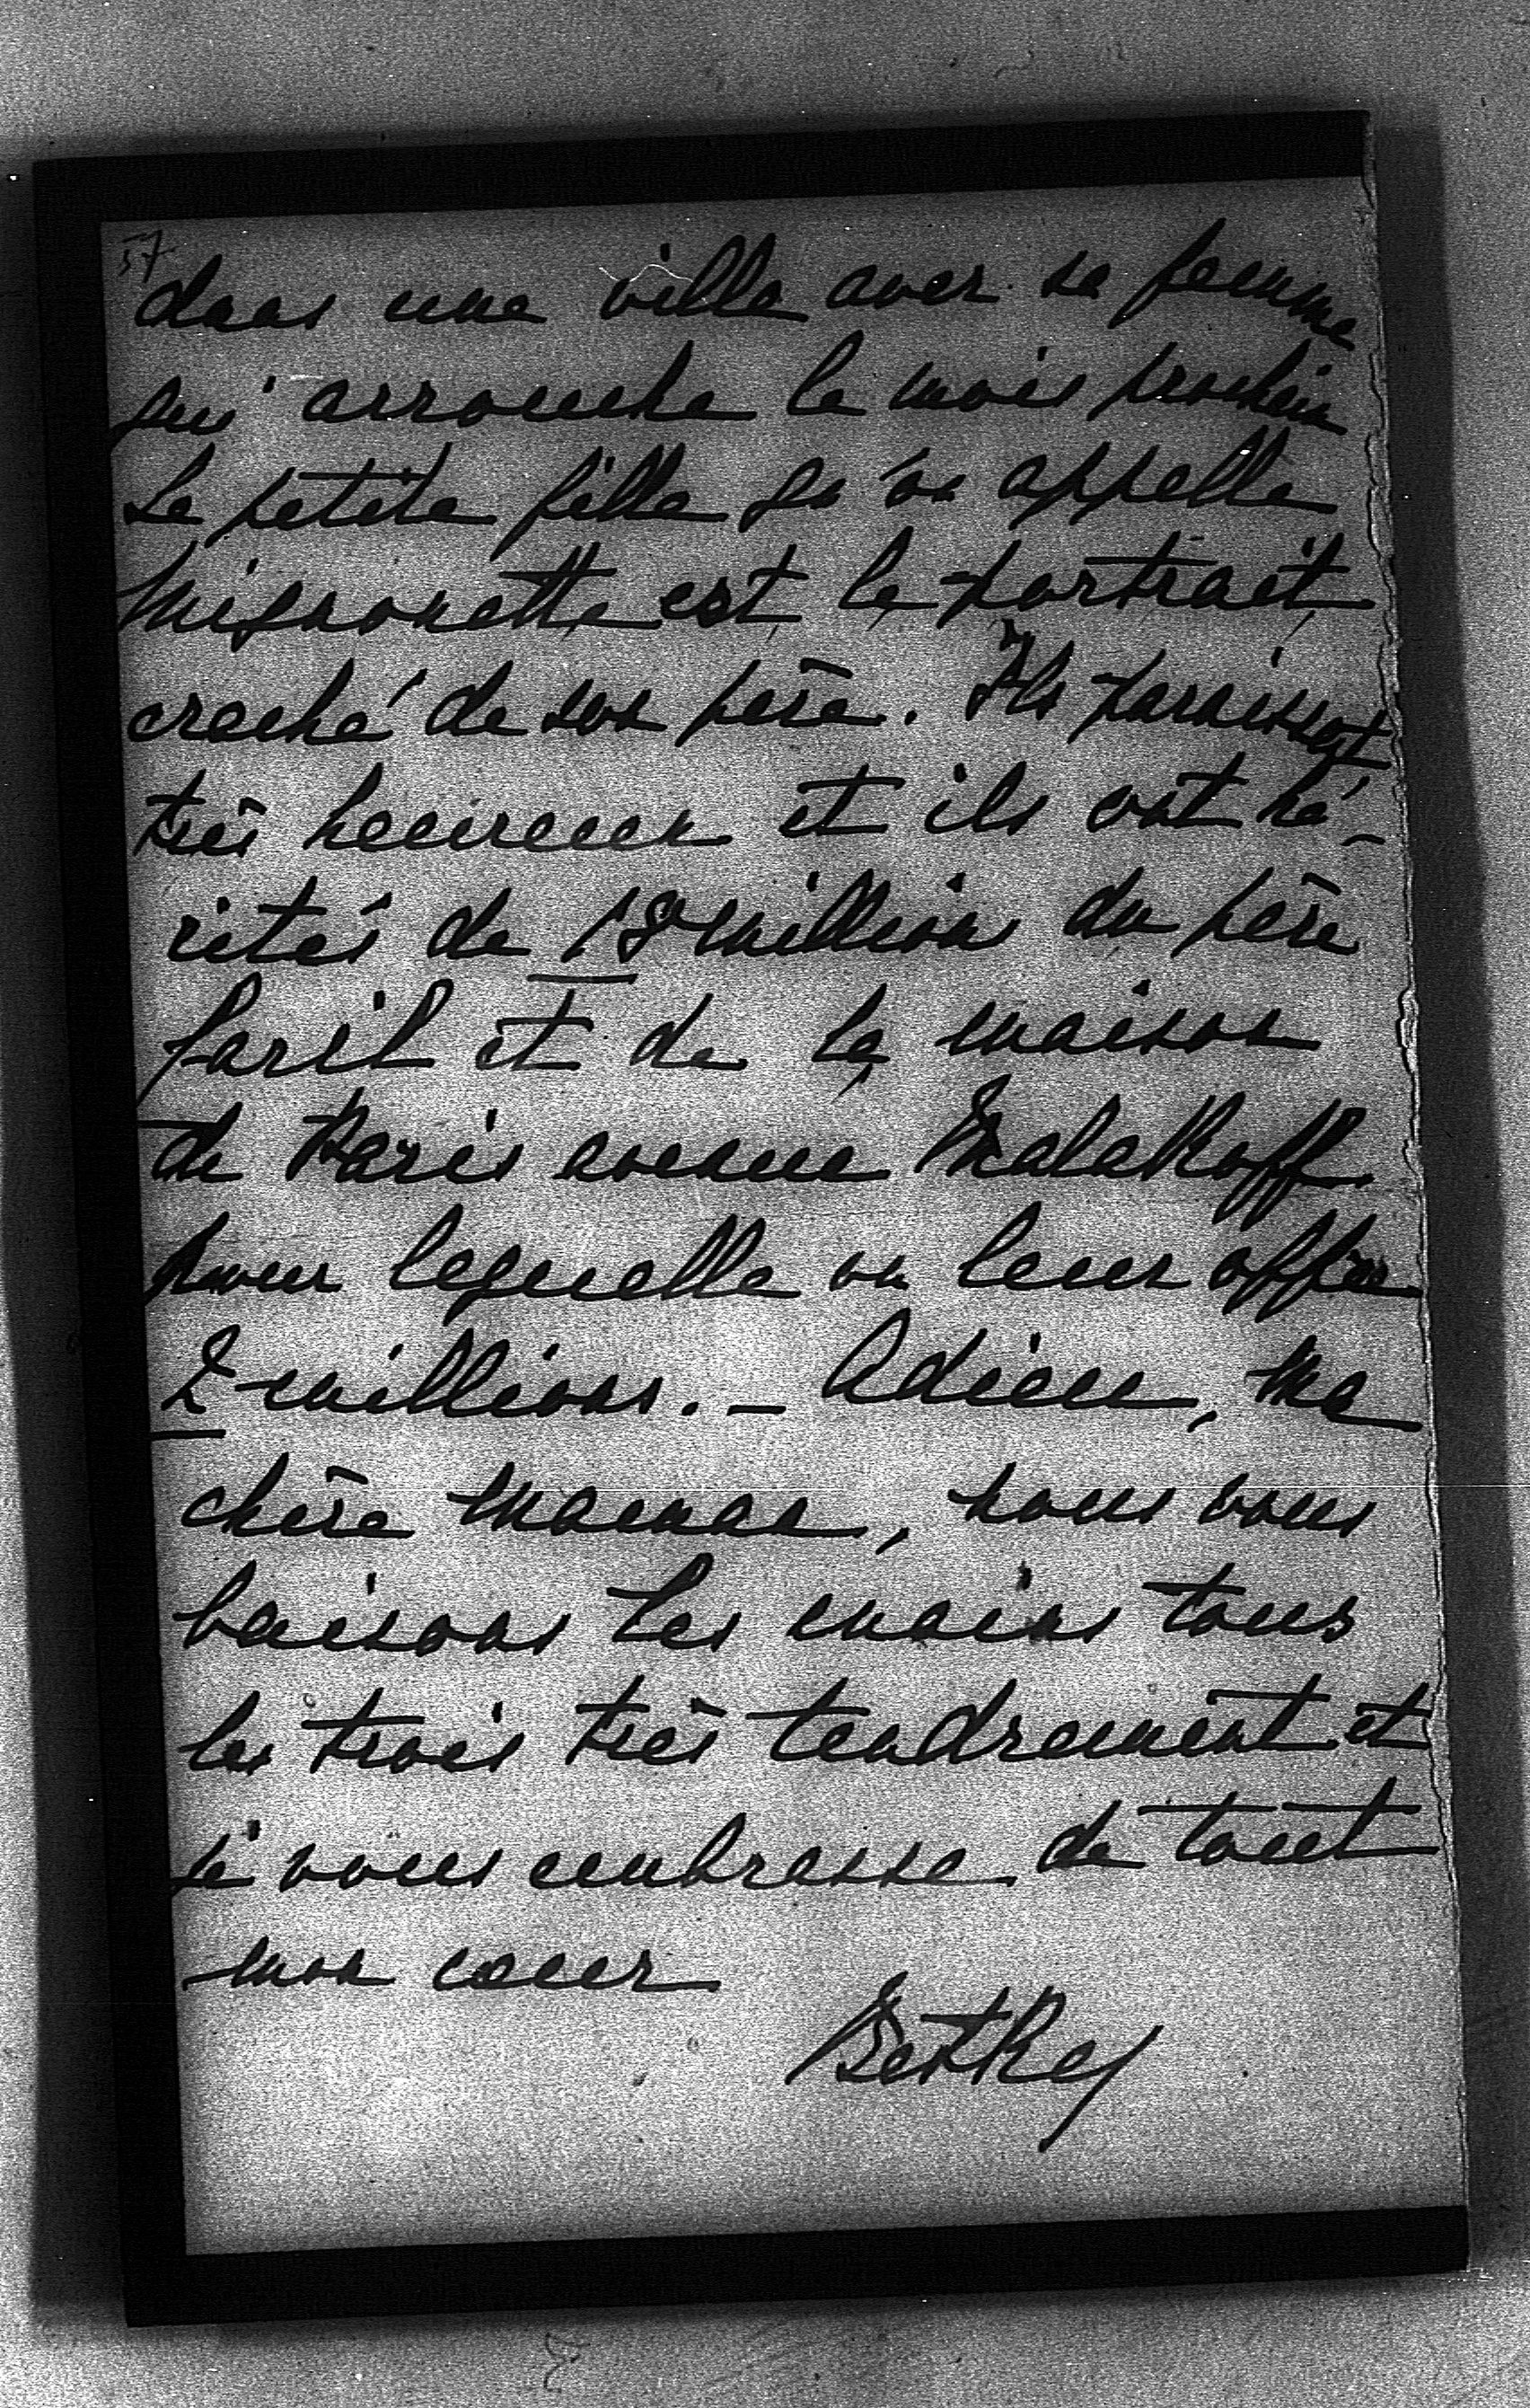 57
dans une villa avec sa femme
qui accouche le mois prochain
La petite fille qu'on appelle
Mignonette est le portrait
craché de son père. Ils paraissent
très heureux et ils ont hé-
rités de 18 millions du père
et de la maison
de Paris avenue Malakoff
pour laquelle on leur offre
2 millions. – Adieu, ma
chère maman, nous vous
baisons les mains tous
les trois très tendrement et
je vous embrasse de tout
mon cœur
Berthe